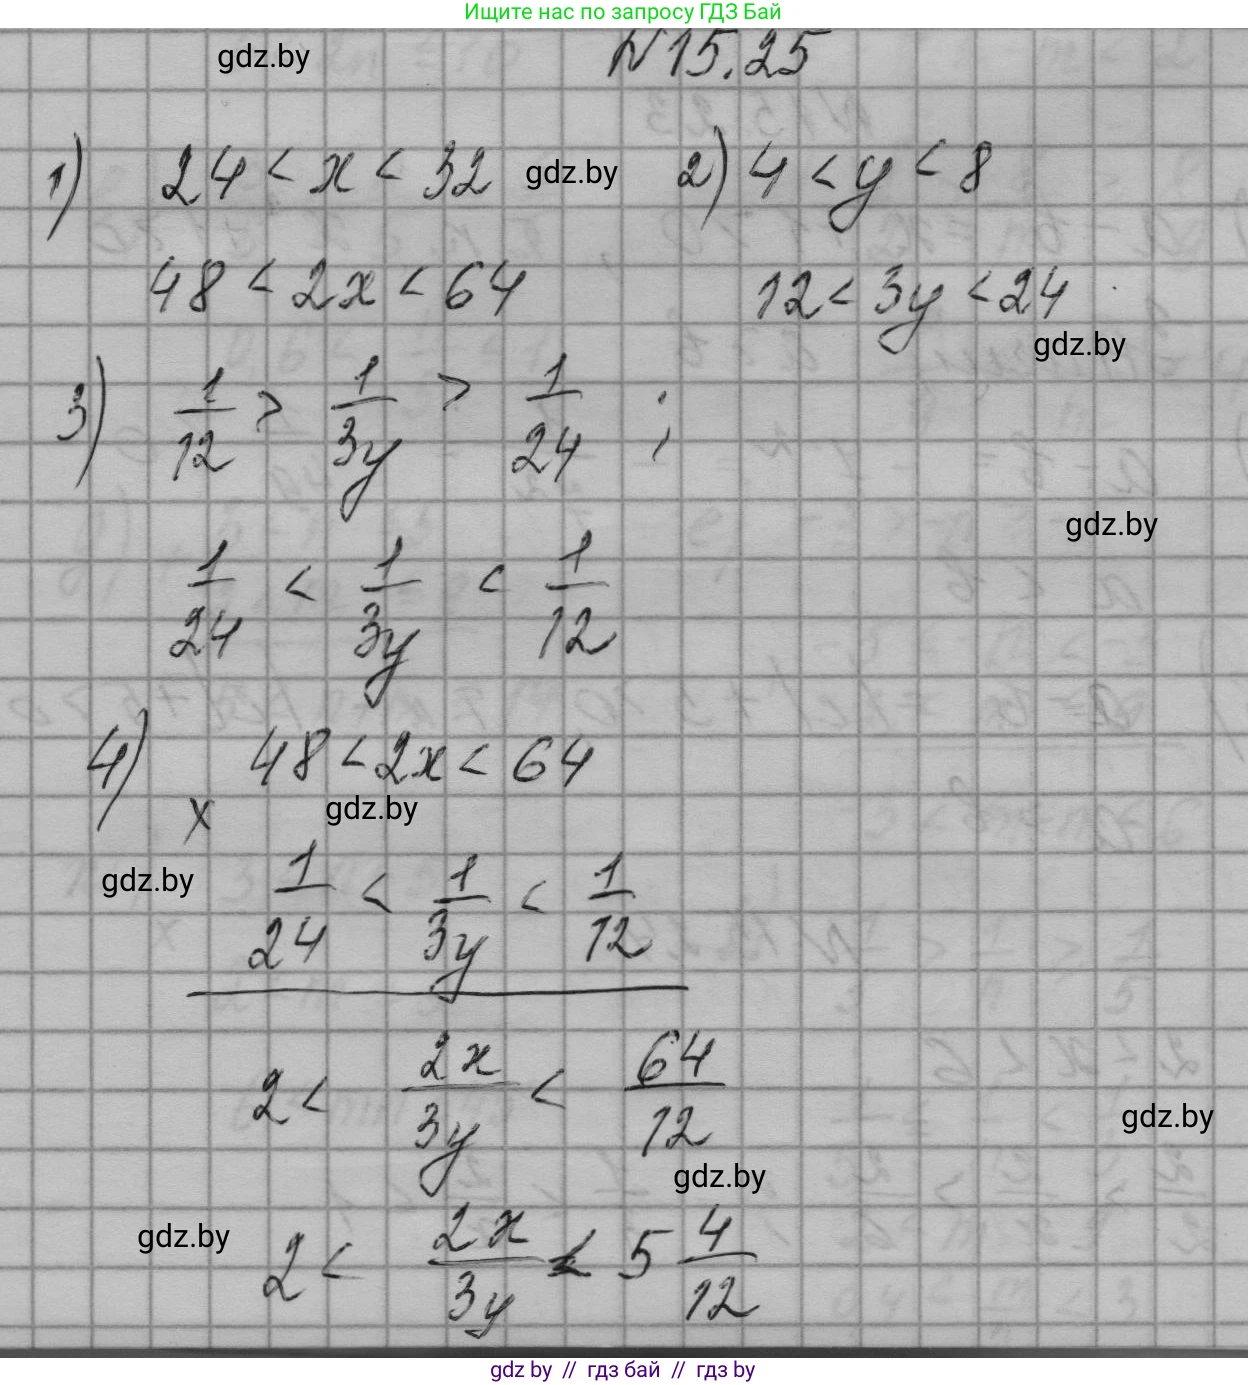 Ищите нас по запросу ГДЗ Бай
gdz.by N 15.25
1) 24 < x < 32 gdz.by 2) 4 < y < 8
48 < 2x < 64 12 < 3y < 24
gdz.by
3) 1/12 > 1/3y > 1/24 ;
gdz.by
1/24 < 1/3y < 1/12
4) 48 < 2x < 64
x gdz.by
gdz.by 1/24 < 1/3y < 1/12
2 < 2x/3y < 64/12
gdz.by
gdz.by
gdz.by 2 < 2x/3y < 5 4/12
gdz by // гдз бай // гдз by